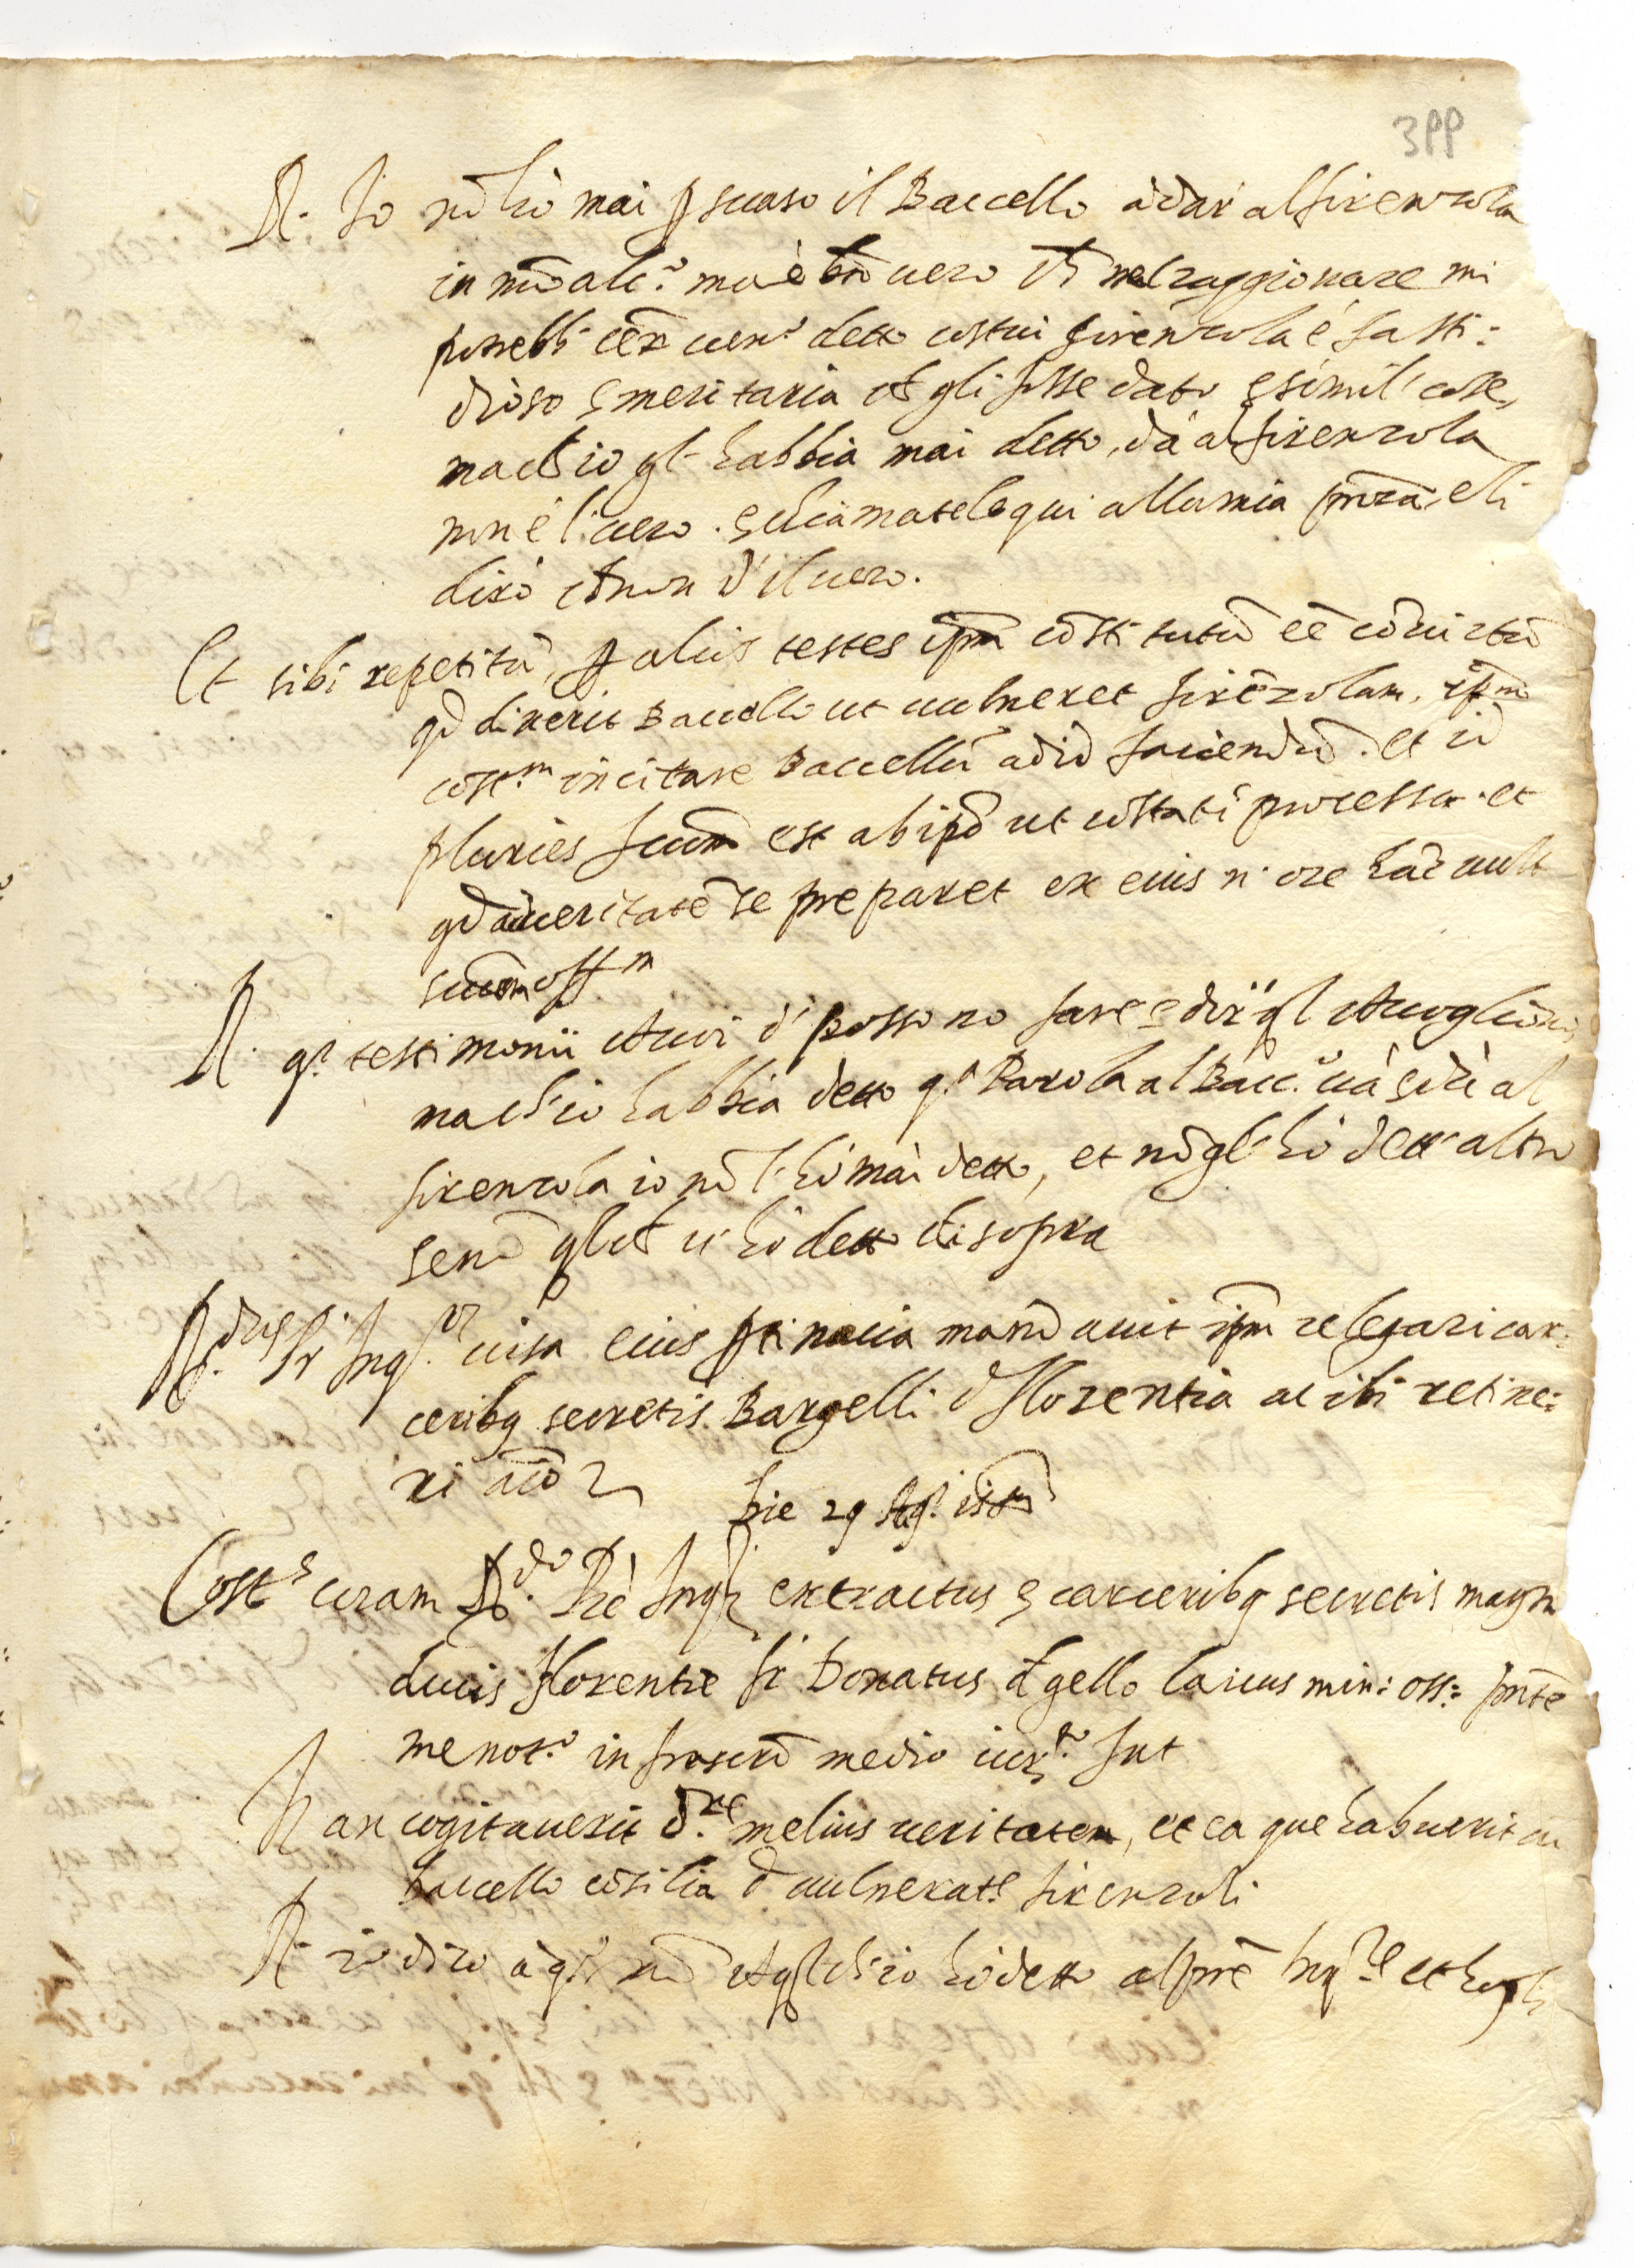 399
R. Io nō hò mai p̱suaso il Baccello à dar al firenzola
in mō alc.o ma è bn̄ uero ch̄ nel raggionare mi
potrebb' eēr uen.o detto costui firenzola è fasti:
dioso e meritaria ch̄ gli fosse dato e simil' cose,
ma ch'io gl' habbia mai detto, dà al firenzola
non è l' uero. e chiamatelo qui alla mia pn̄zā, e li
dirò ch̄ non d' il uero.
Et sibi repetitū, p̱ aliis testes ip̄m cōstitutū eē cōuictū
qd̄ dixerit Baccello ut uulneret firēzolam, ip̄m
cost.m incitare Baccellū ad id faciendū. et id
pluries fcūm est ab ip̄o ut cōstat ī processu. et
qd̄ ad ueritatē se preparet ex eius n. ore hāc uult
R. q.i testimonii possono fare e dir' q.l ch̄ uogliono,
ma ch'io habbia detto q.a Parola al Bacc.o uà e dà al
firenzola io nō l' hò mai detto, et nō gl' hò dett' altro
senō q.l ch̄ u' hò detto di sopra
R.dus P.r Inq.or uisa eius p̱tinacia mandauit ip̄m relegari car:
ceribq secretis Bargelli d Florentia ac ibi retine:
ri
Die 29
Cost.s coram R.do Prē Inq.r extractus e carceribq secretis magni
ducis Florentie fr Donatus d gello laicus min: oss: pn̄te
me not.o infrascrō medio iur.to fuit
It an cogitauerit d.re melius ueritatem, et ea que habuerit cū
baccello cōsilia d uulnerat.e firenzoli
R. io dico ch'io hò detto al prē Inq.re